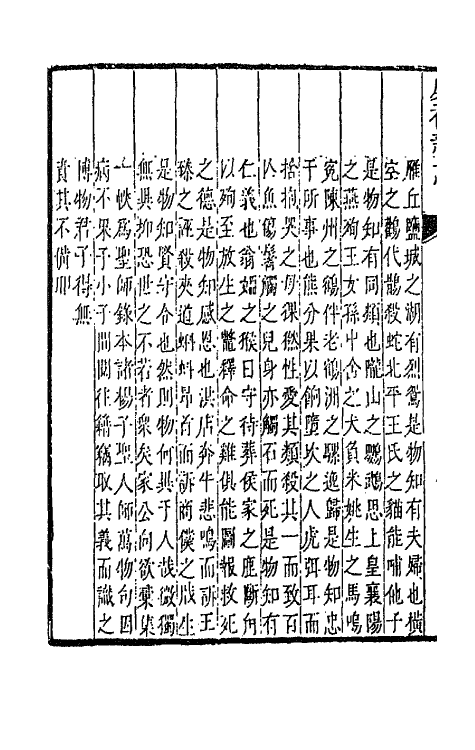 雁丘鹽城之湖有烈鴛是物知有夫婦也橫
空之鸛代鵲殺蛇北平王氏之貓能哺他子
是物知有同類也隴山之鸚鵡思上皇襄陽
之燕殉王女孫中舍之犬負米姚生之馬鳴
冤陳州之鷂伴老鶴洲之騾逸歸是物知忠
于所事也熊分果以餉墮坎之人虎弭耳而
捨損哭之母猓然性愛其類殺其一而致百
人魚傷鬐觸之兒身亦觸石而死是物知有
仁義也翁媼之猴日守待葬侯家之鹿斷角
以殉至放生之鱉釋命之雞俱能圖報救死
之德是物知感恩也洪店奔牛悲鳴而訴王
臻之誣殺夾道蝌蚪昂首而訴商僕之戕生
是物知賢守令也然則物何異于人哉微獨
無異抑恐世之不若者衆矣家公向欲彙集
一帙爲聖師錄本諸楊子聖人師萬物句因
病不果予小子間閱往籍竊取其義而識之
博物君子得無
責其不備耶